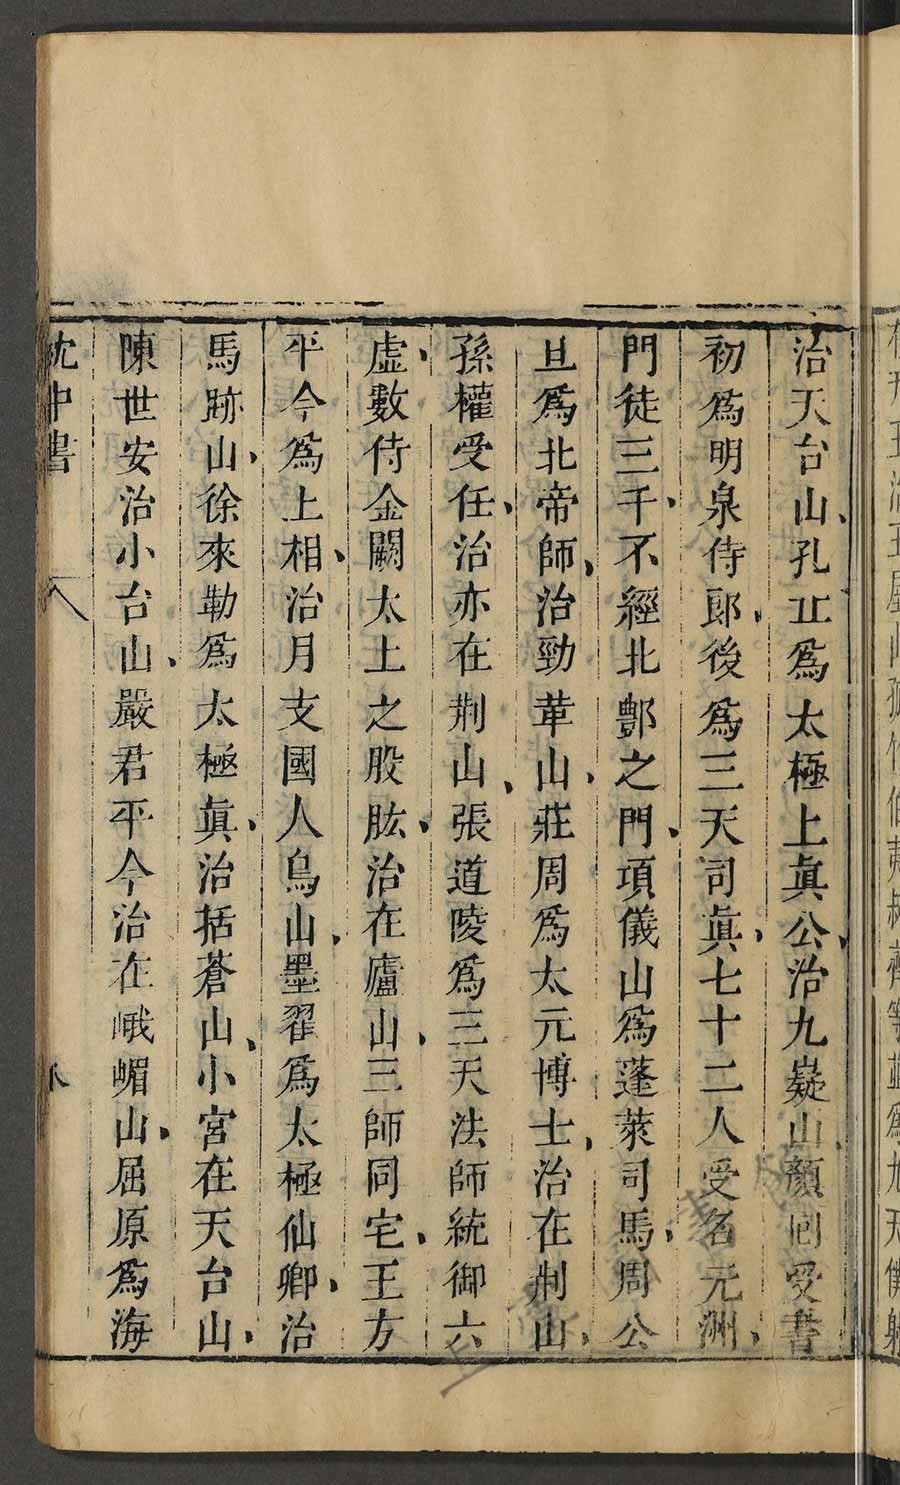 治天台山、孔丘爲太極上眞公、治九嶷山、顏回受書
初爲明泉侍郎、後爲三天司眞、七十二人受名元洲、
門徒三千、不經北酆之門、項儀山爲蓬萊司馬、周公
旦爲北帝師、治勁革山、莊周爲太元博士、治在荆山、
孫權受任、治亦在荆山、張道陵爲三天法師統御六
虛、數侍金闕太上之股肱、治在廬山、三師同宅、王方
平今爲上相、治月支國人鳥山、墨翟爲太極仙卿、治
馬跡山、徐來勒爲太極眞、治括蒼山、小宮在天台山、
陳世安治小台山、嚴君平今治在峨嵋山、屈原爲海
枕中書 八